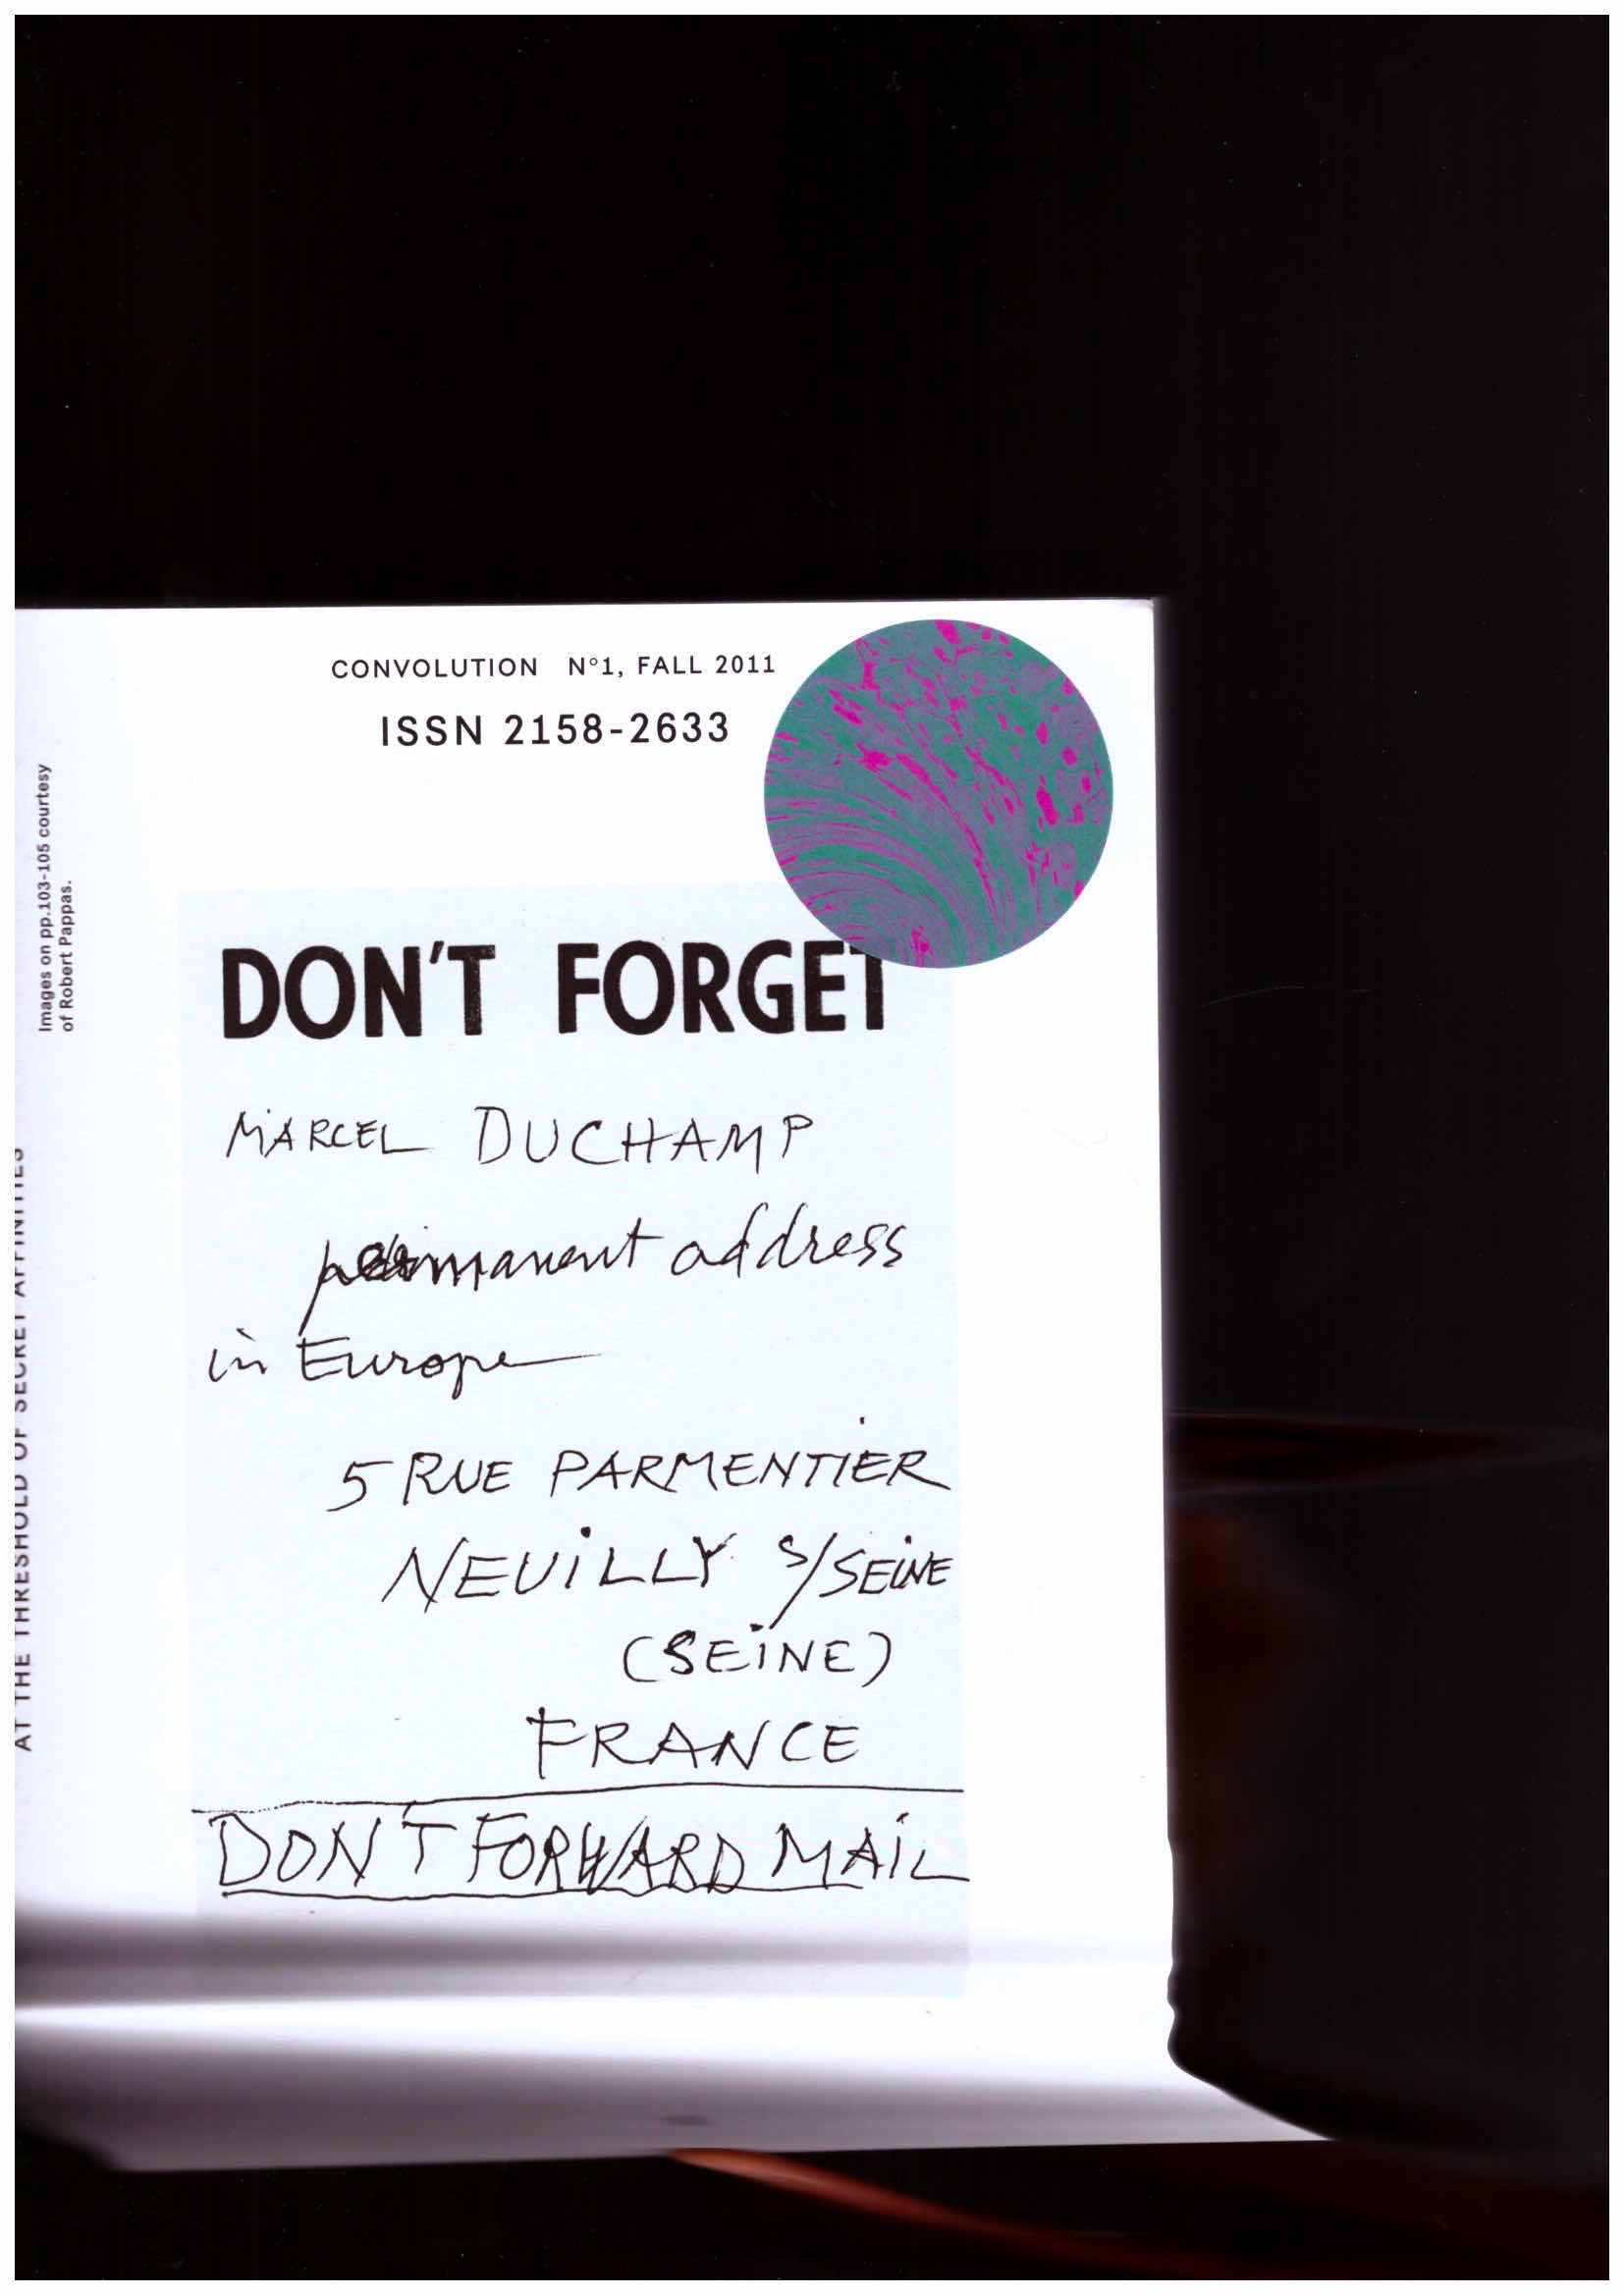 CONVOLUTION N°1, FALL 2011
ISSN 2158-2633
Images on pp.103-105 courtesy
of Robert Pappas.
AT THE THRESHOLD OF SECRET AFFINITIES
DON'T FORGET
MARCEL DUCHAMP
permanent address
in Europe
5 RUE PARMENTIER
NEUILLY S/SEINE
(SEINE)
FRANCE
DON'T FORWARD MAIL